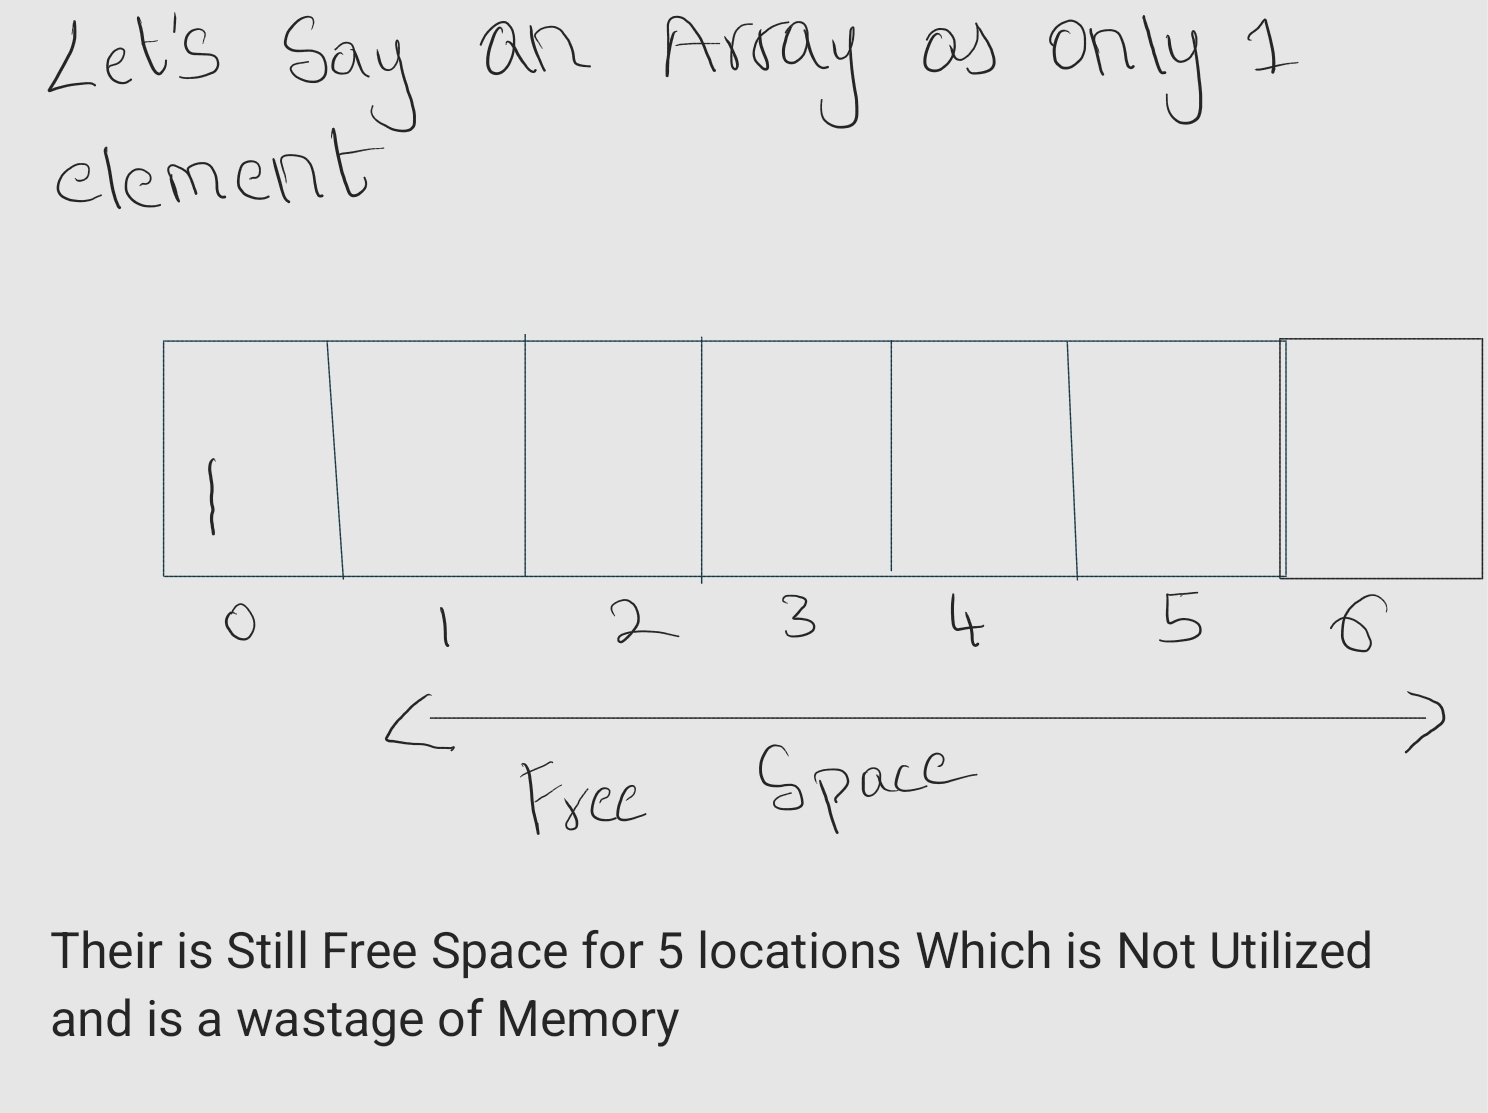 Let's Say an Array as only 1
element
1
0 1 2 3 4 5 6
Free Space
Their is Still Free Space for 5 locations Which is Not Utilized
and is a wastage of Memory